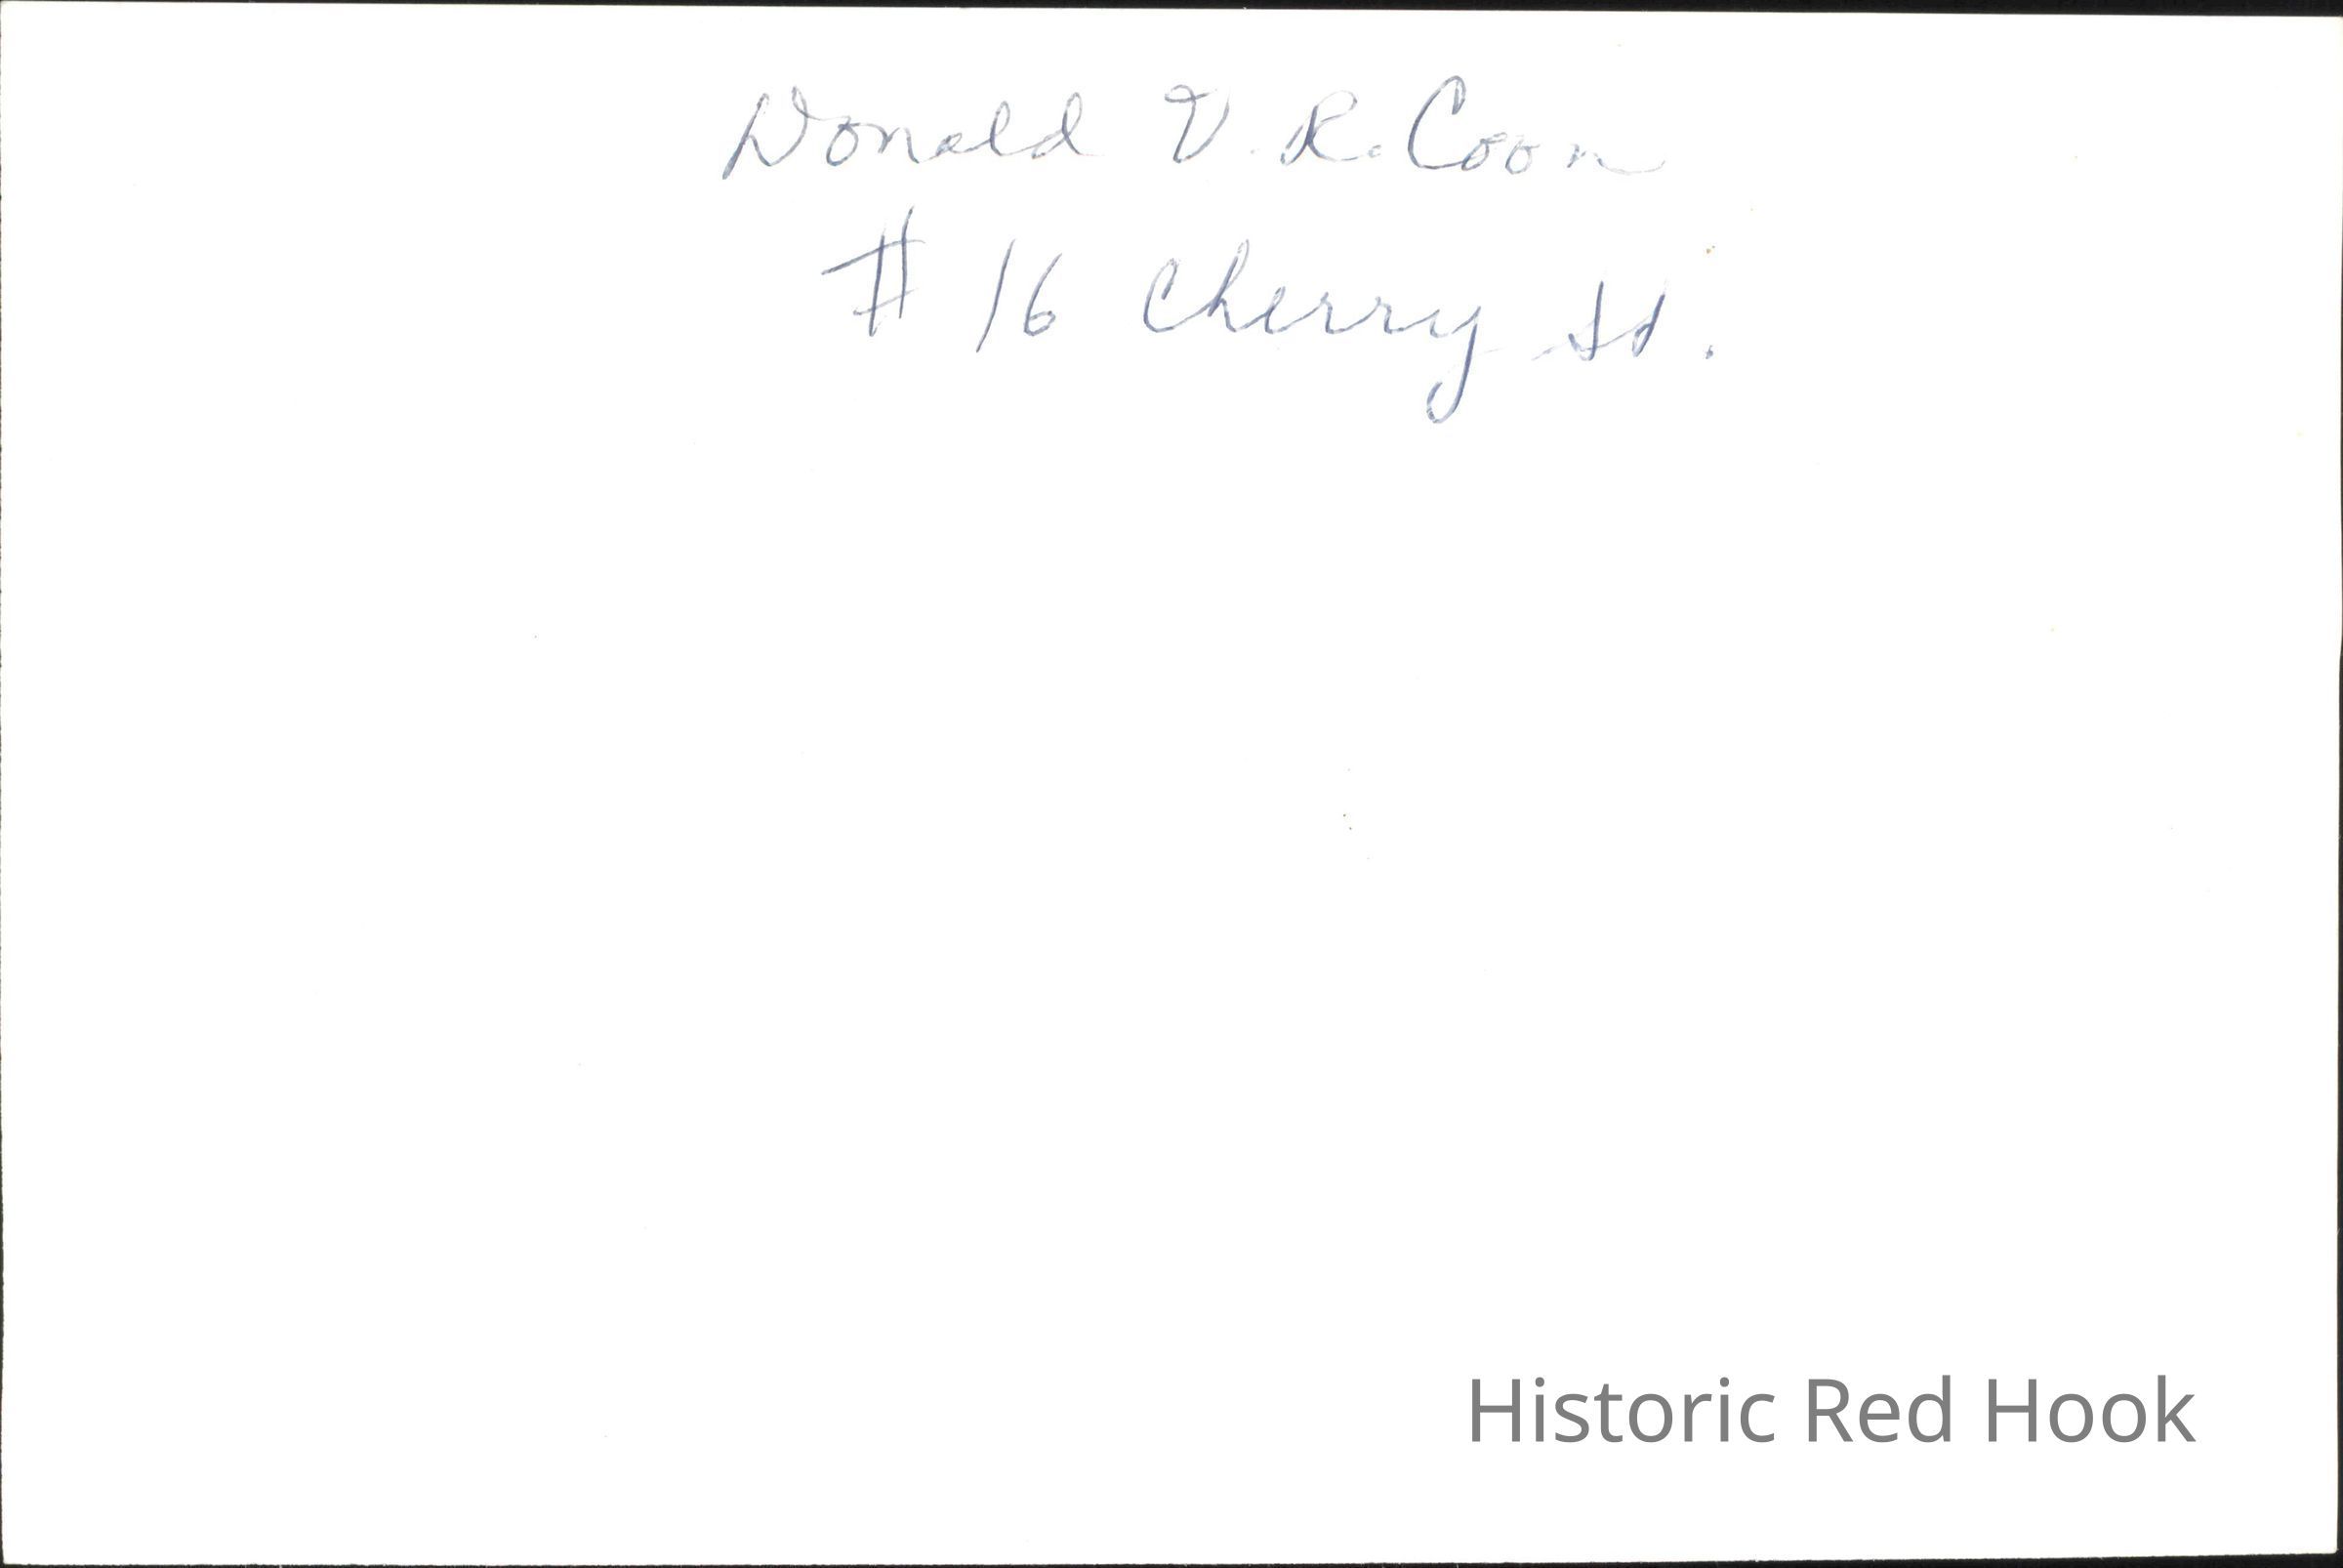 Donald V. R. Coon
# 16 Cherry St.
Historic Red Hook